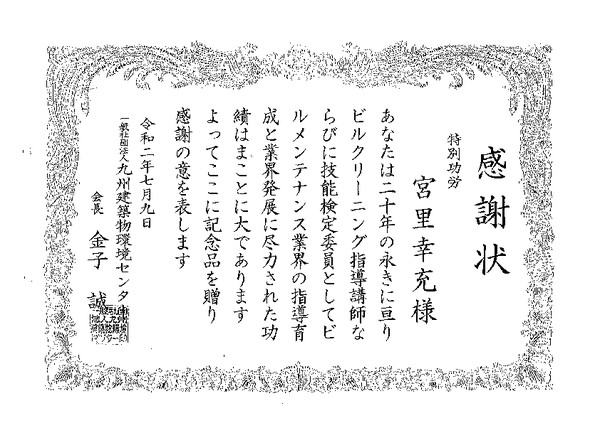 感謝状
特別功労
宮里幸充様
あなたは二十年の永きに亘り
ビルクリーニング指導講師な
らびに技能検定委員としてビ
ルメンテナンス業界の指導育
成と業界発展に尽力された功
績はまことに大であります
よってここに記念品を贈り
感謝の意を表します
令和二年七月九日
一般社団法人九州建築物環境センター
会長 金子 誠